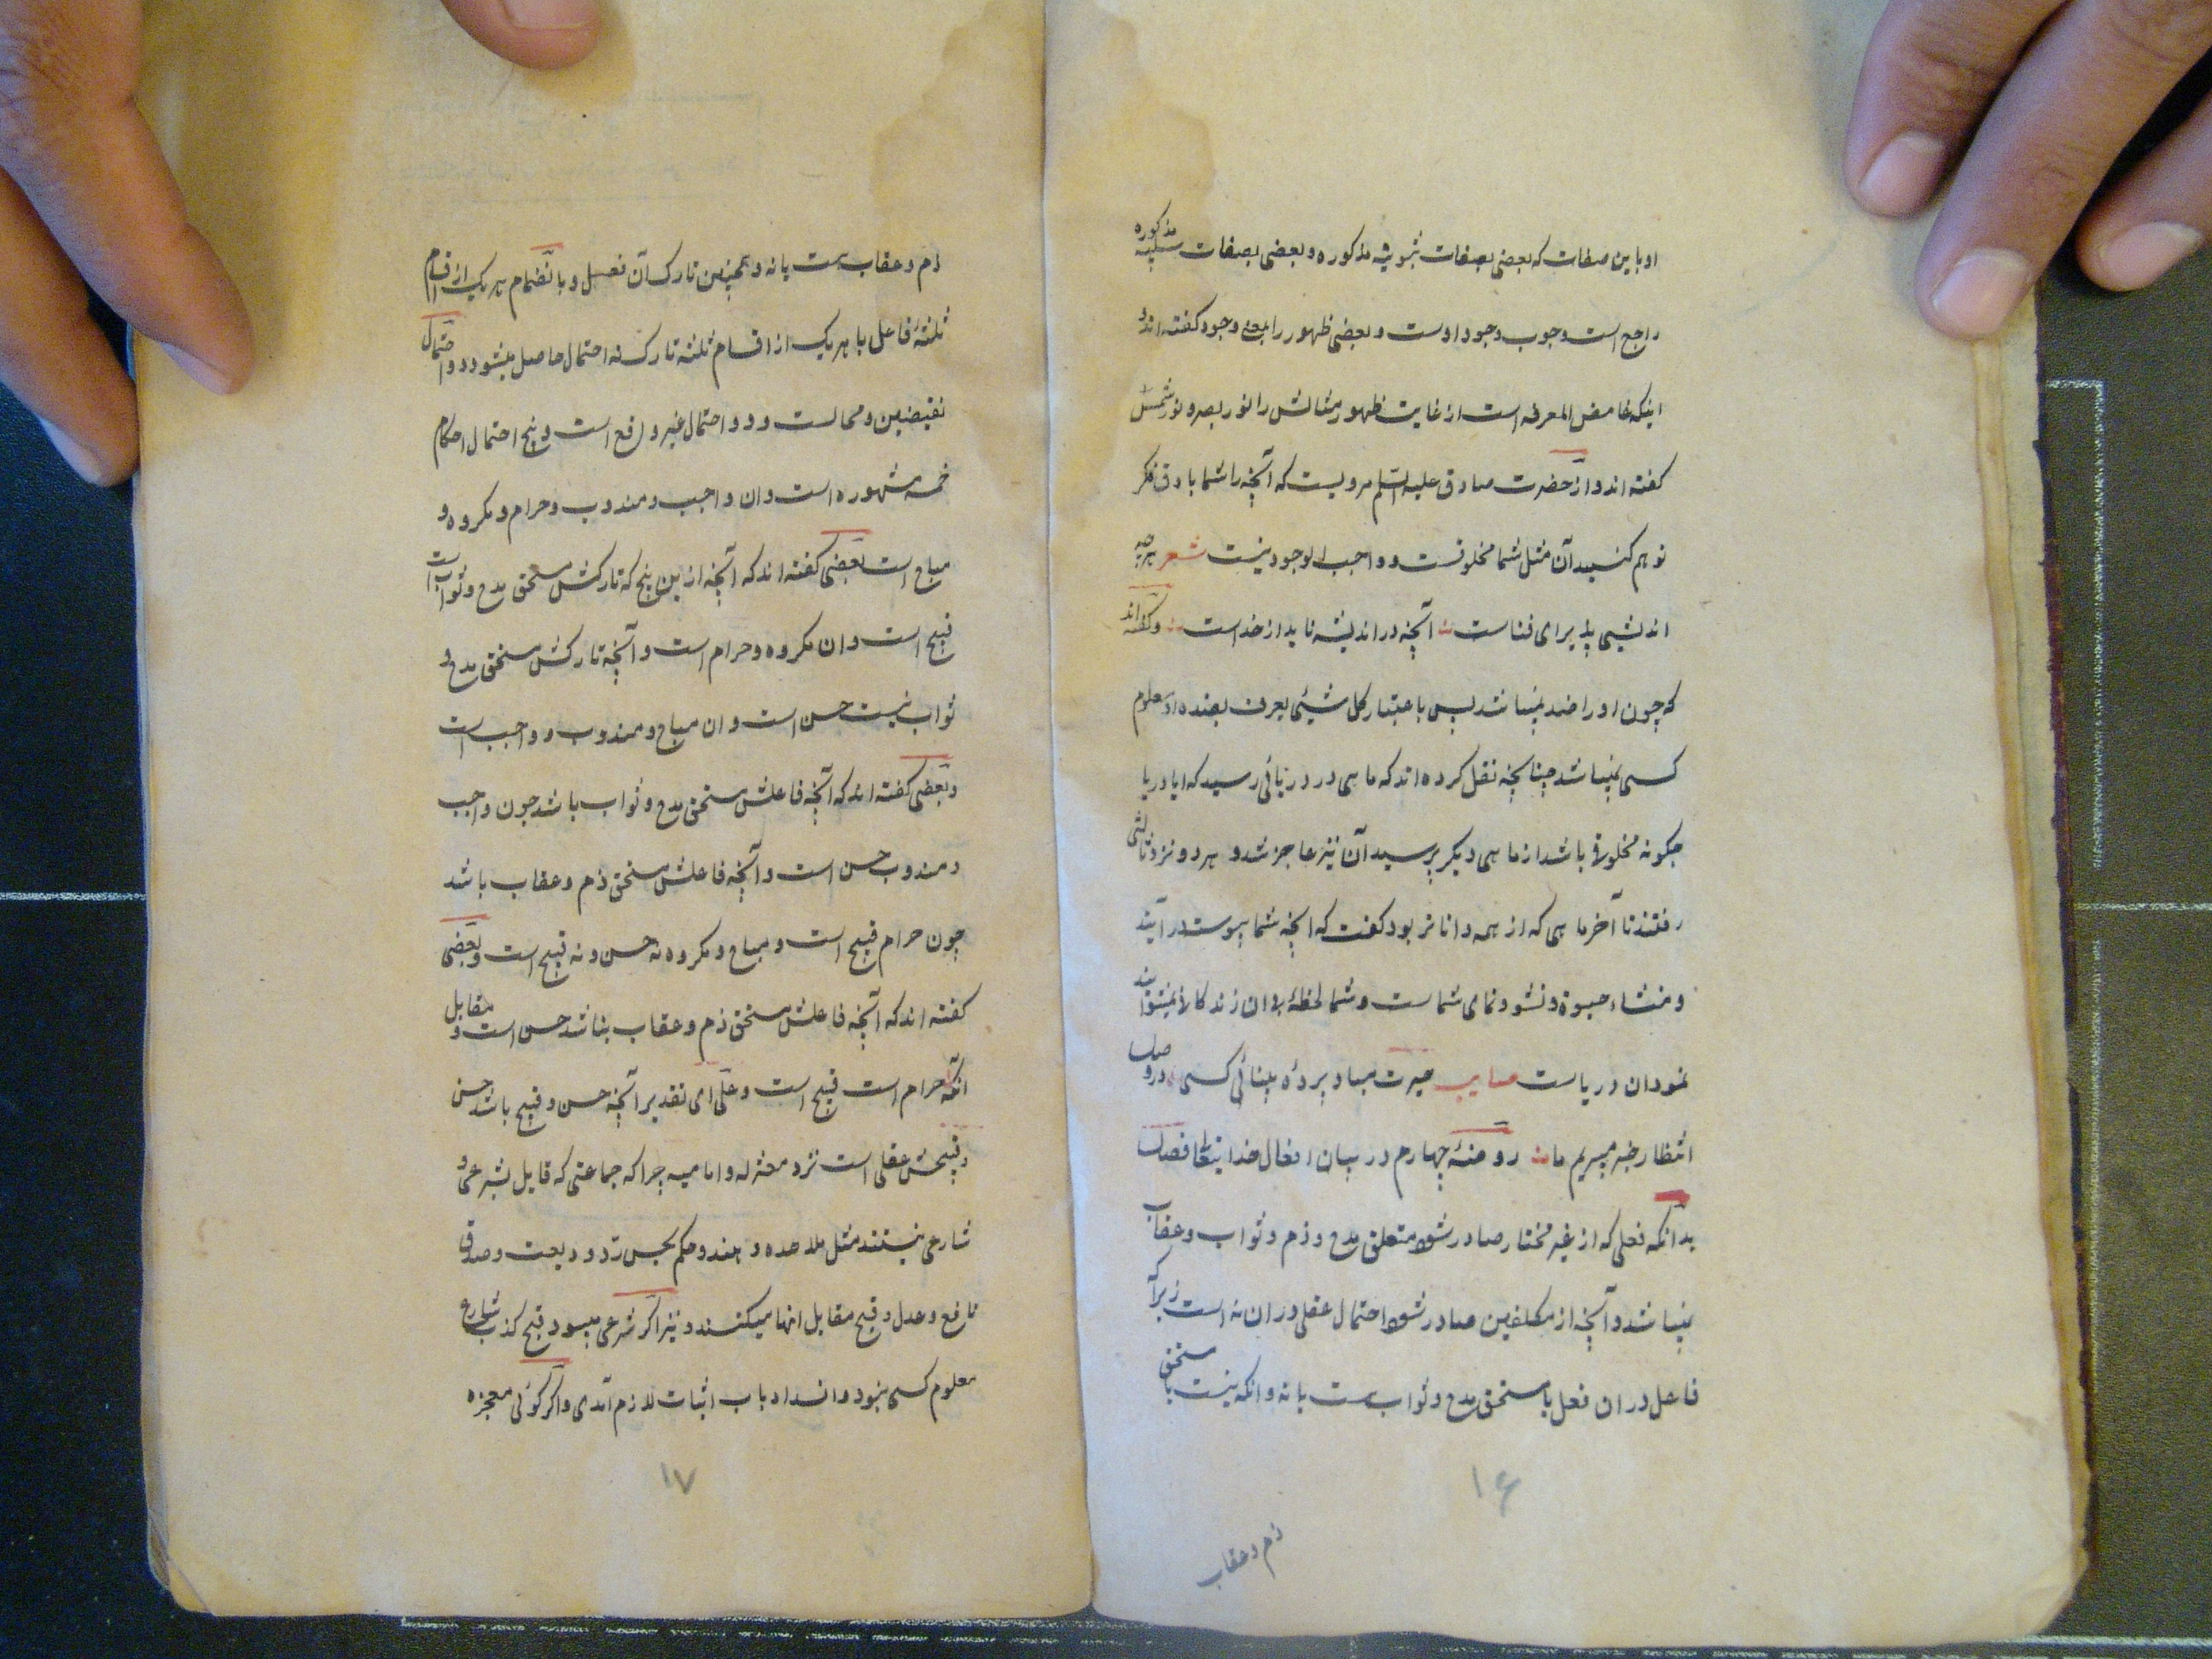 او باین صفات که بعضی بصفات ثبوتیه مذکوره و بعضی بصفات سلبیه مذکوره
راجع است وجوب وجود اوست و بعضی ظهور را بمعنی وجود گفته اند و
اینکه غامض المعرفه است از غایت ظهور مثالش را نور بصر و نور شمس
گفته اند و از حضرت صادق علیه السلم مرویست که آنچه را شما بادق فکر
توهم کنید آن مثل شما مخلوقست و واجب الوجود نیست شعر هرچه
اندیشی پذیرای فناست آنچه در اندیشه ناید از خداست و گفته اند
که چون او را ضد نمیباشد پس باعتبار کل شیئی یعرف بضده او معلوم
کسی نمیباشد چنانچه نقل کرده اند که ماهی در دریائی رسید که ایا دریا
چکونه مخلوقی باشد از ماهی دیکر پرسید آن نیز عاجز شد و هر دو نزد ثالثی
رفتند تا آخر ماهی که از همه داناتر بود کفت که انچه شما پیوسته در آیند
و منشاء حیوة و نشو و نمای شماست و شما لحظهٔ بی ان زندکانی نمیتوانید
نمود ان دریاست صایب حیرت مباد پردهٔ بینائی کسی در وصل
انتظار خبر میبریم ما روضهٔ چهارم در بیان افعال خدایتعالی فصل
بدانکه فعلی که از غیر مختار صادر شود متعلق مدح و ذم و ثواب و عقاب
نمیباشد و آنچه از مکلفین صادر شود احتمال عقلی در ان نه است زیرا که
فاعل در ان فعل یا مستحق مدح و ثواب هست یا نه و انکه نیست یا مستحق
۱۶
ذم و عقاب
ذم و عقاب هست یا نه و همچنین تارک آن فعل و بانضمام هر یک از اقسام
ثلثهٔ فاعل با هر یک از اقسام ثلثه تارک نه احتمال حاصل میشود دو احتمال
نقیضین و محالست و دو احتمال غیر واقع است و پنج احتمال احکام
خمسه مشهوره است و ان واجب و مندوب و حرام و مکروه و
مباح است بعضی کفته اند که آنچه از ین پنج که تارکش مستحق مدح و ثواب است
قبیح است و ان مکروه و حرام است و آنچه تارکش مستحق مدح و
ثواب نیست حسن است و ان مباح و مندوب و واجب است
و بعضی کفته اند که آنچه فاعلش مستحق مدح و ثواب باشد چون واجب
و مندوب حسن است و آنچه فاعلش مستحق ذم و عقاب باشد
چون حرام قبیح است و مباح و مکروه نه حسن و نه قبیح است و بعضی
کفته اند که آنچه فاعلش مستحق ذم و عقاب نباشد حسن است و مقابل
انکه حرام است قبیح است و علی ای تقدیر آنچه حسن و قبیح باشد حسن
و قبحش عقلی است نزد معتزله و امامیه چرا که جماعتی که قایل بشرعی و
شارعی نیستند مثل ملاحده و هند و حکم بحسن رد ودیعت و صدق
نافع و عدل و قبح مقابل انها میکنند و نیز اکر شرعی میبود قبح کذب شارع
معلوم کسی نبود و انسداد باب اثبات لازم آمدی و اکر کوئی معجزه
۱۷